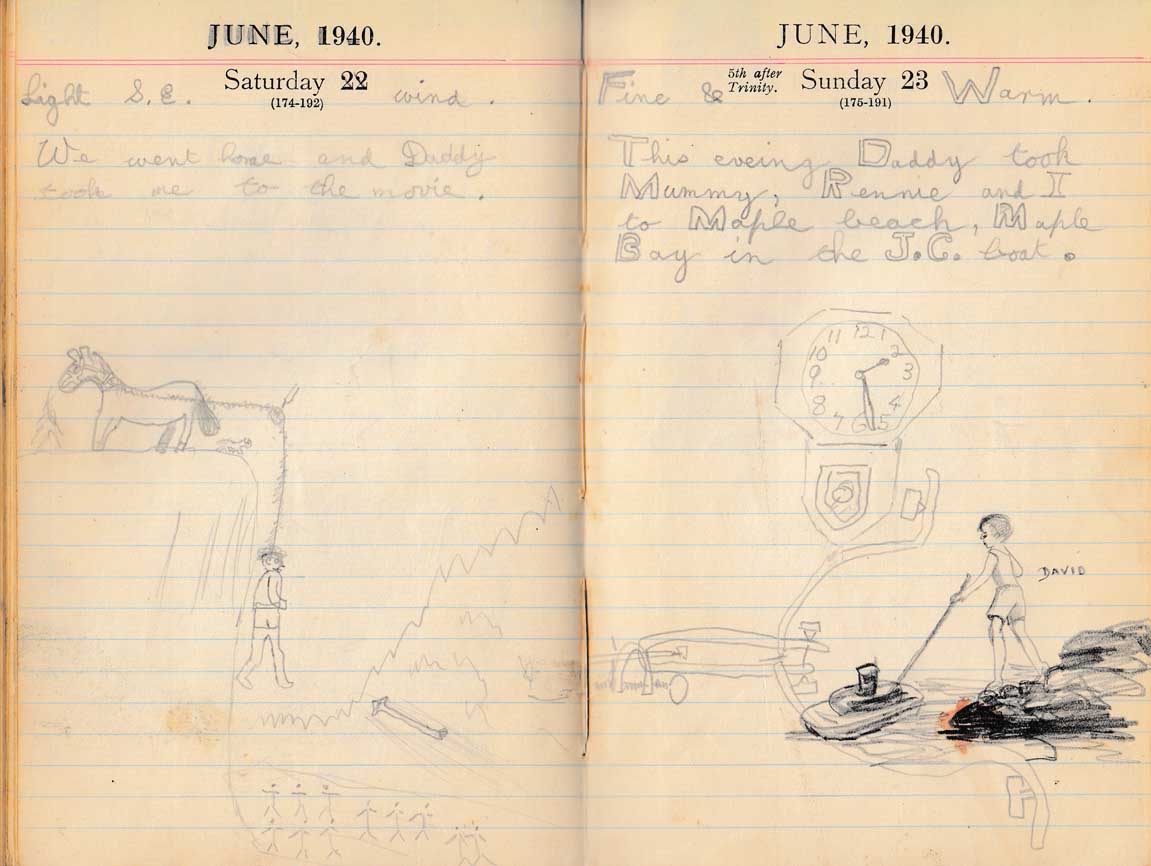 JUNE, 1940.
Saturday 22
(174-192)
Light S.E. wind.
We went home and Daddy
took me to the movie.
JUNE, 1940.
5th after
Trinity.
Sunday 23
(175-191)
Fine & Warm.
This eveing Daddy took
Mummy, Rennie and I
to Maple beach, Maple
Bay in the J.C. boat.
11 12 1
10 2
9 3
8 4
7 6 5
DAVID